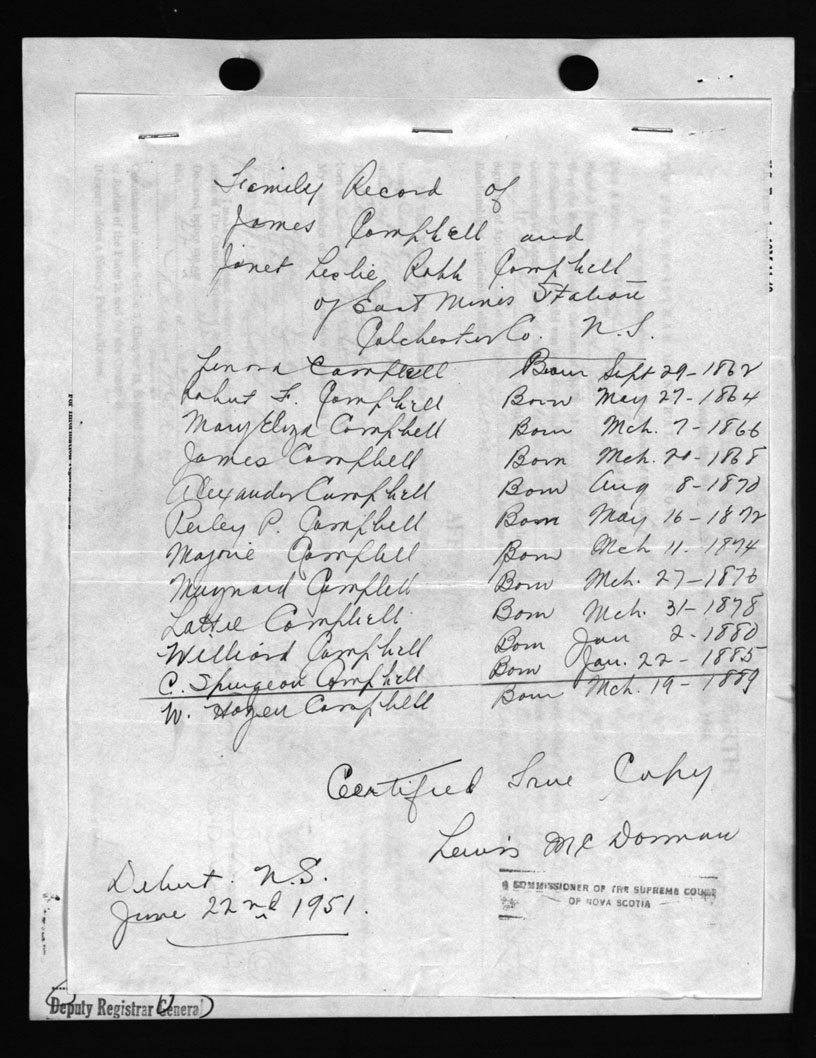 Family Record of
James Campbell and
Janet Leslie Robb Campbell
of East Mines Station
Colchester Co. N.S.
Lenora Campbell Born Sept 29-1862
Robert F. Campbell Born May 27-1864
Mary Eliza Campbell Born Mch. 7-1866
James Campbell Born Mch. 20-1868
Alexander Campbell Born Aug 8-1870
Perley P. Campbell Born May 16-1872
Majorie Campbell Born Mch 11. 1874
Maynard Campbell Born Mch. 27-1876
Lattie Campbell Born Mch. 31-1878
Williard Campbell Born Jan 2-1880
C. Spurgeon Campbell Born Jan. 22-1885
W. Campbell Born Mch. 19-1889
Certified True Copy
Lewis McDorman
COMMISSIONER OF THE SUPREME COURT
OF NOVA SCOTIA
Debert. N.S.
June 22nd 1951.
Deputy Registrar General